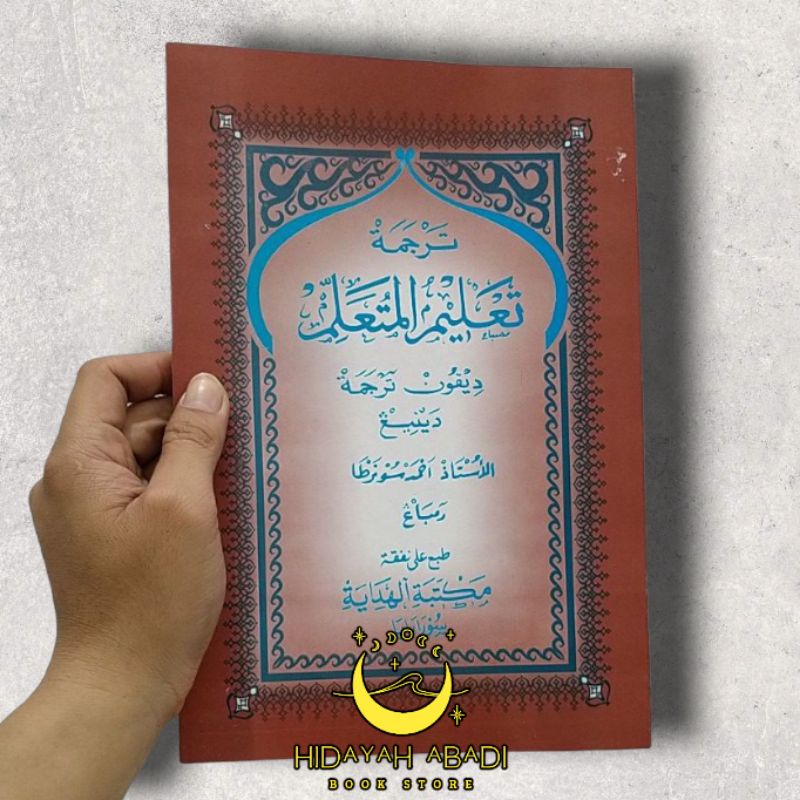 تَرْجَمَةْ
تَعْلِيْمُ الْمُتَعَلِّمْ
دِيْفُونْ تَرْجَمَةْ
دَيْنِيْڠْ
الأُسْتَاذْ اَحْمَدْ سُوْنَرْطَا
رَمْبَاڠْ
طبع على نفقة
مَكْتَبَةْ الْهِدَايَةْ
سُوْرَابَايَا
HIDAYAH ABADI
BOOK STORE